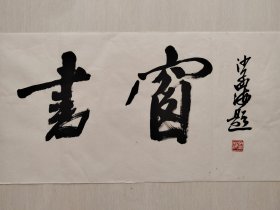 書窗
沙孟海題